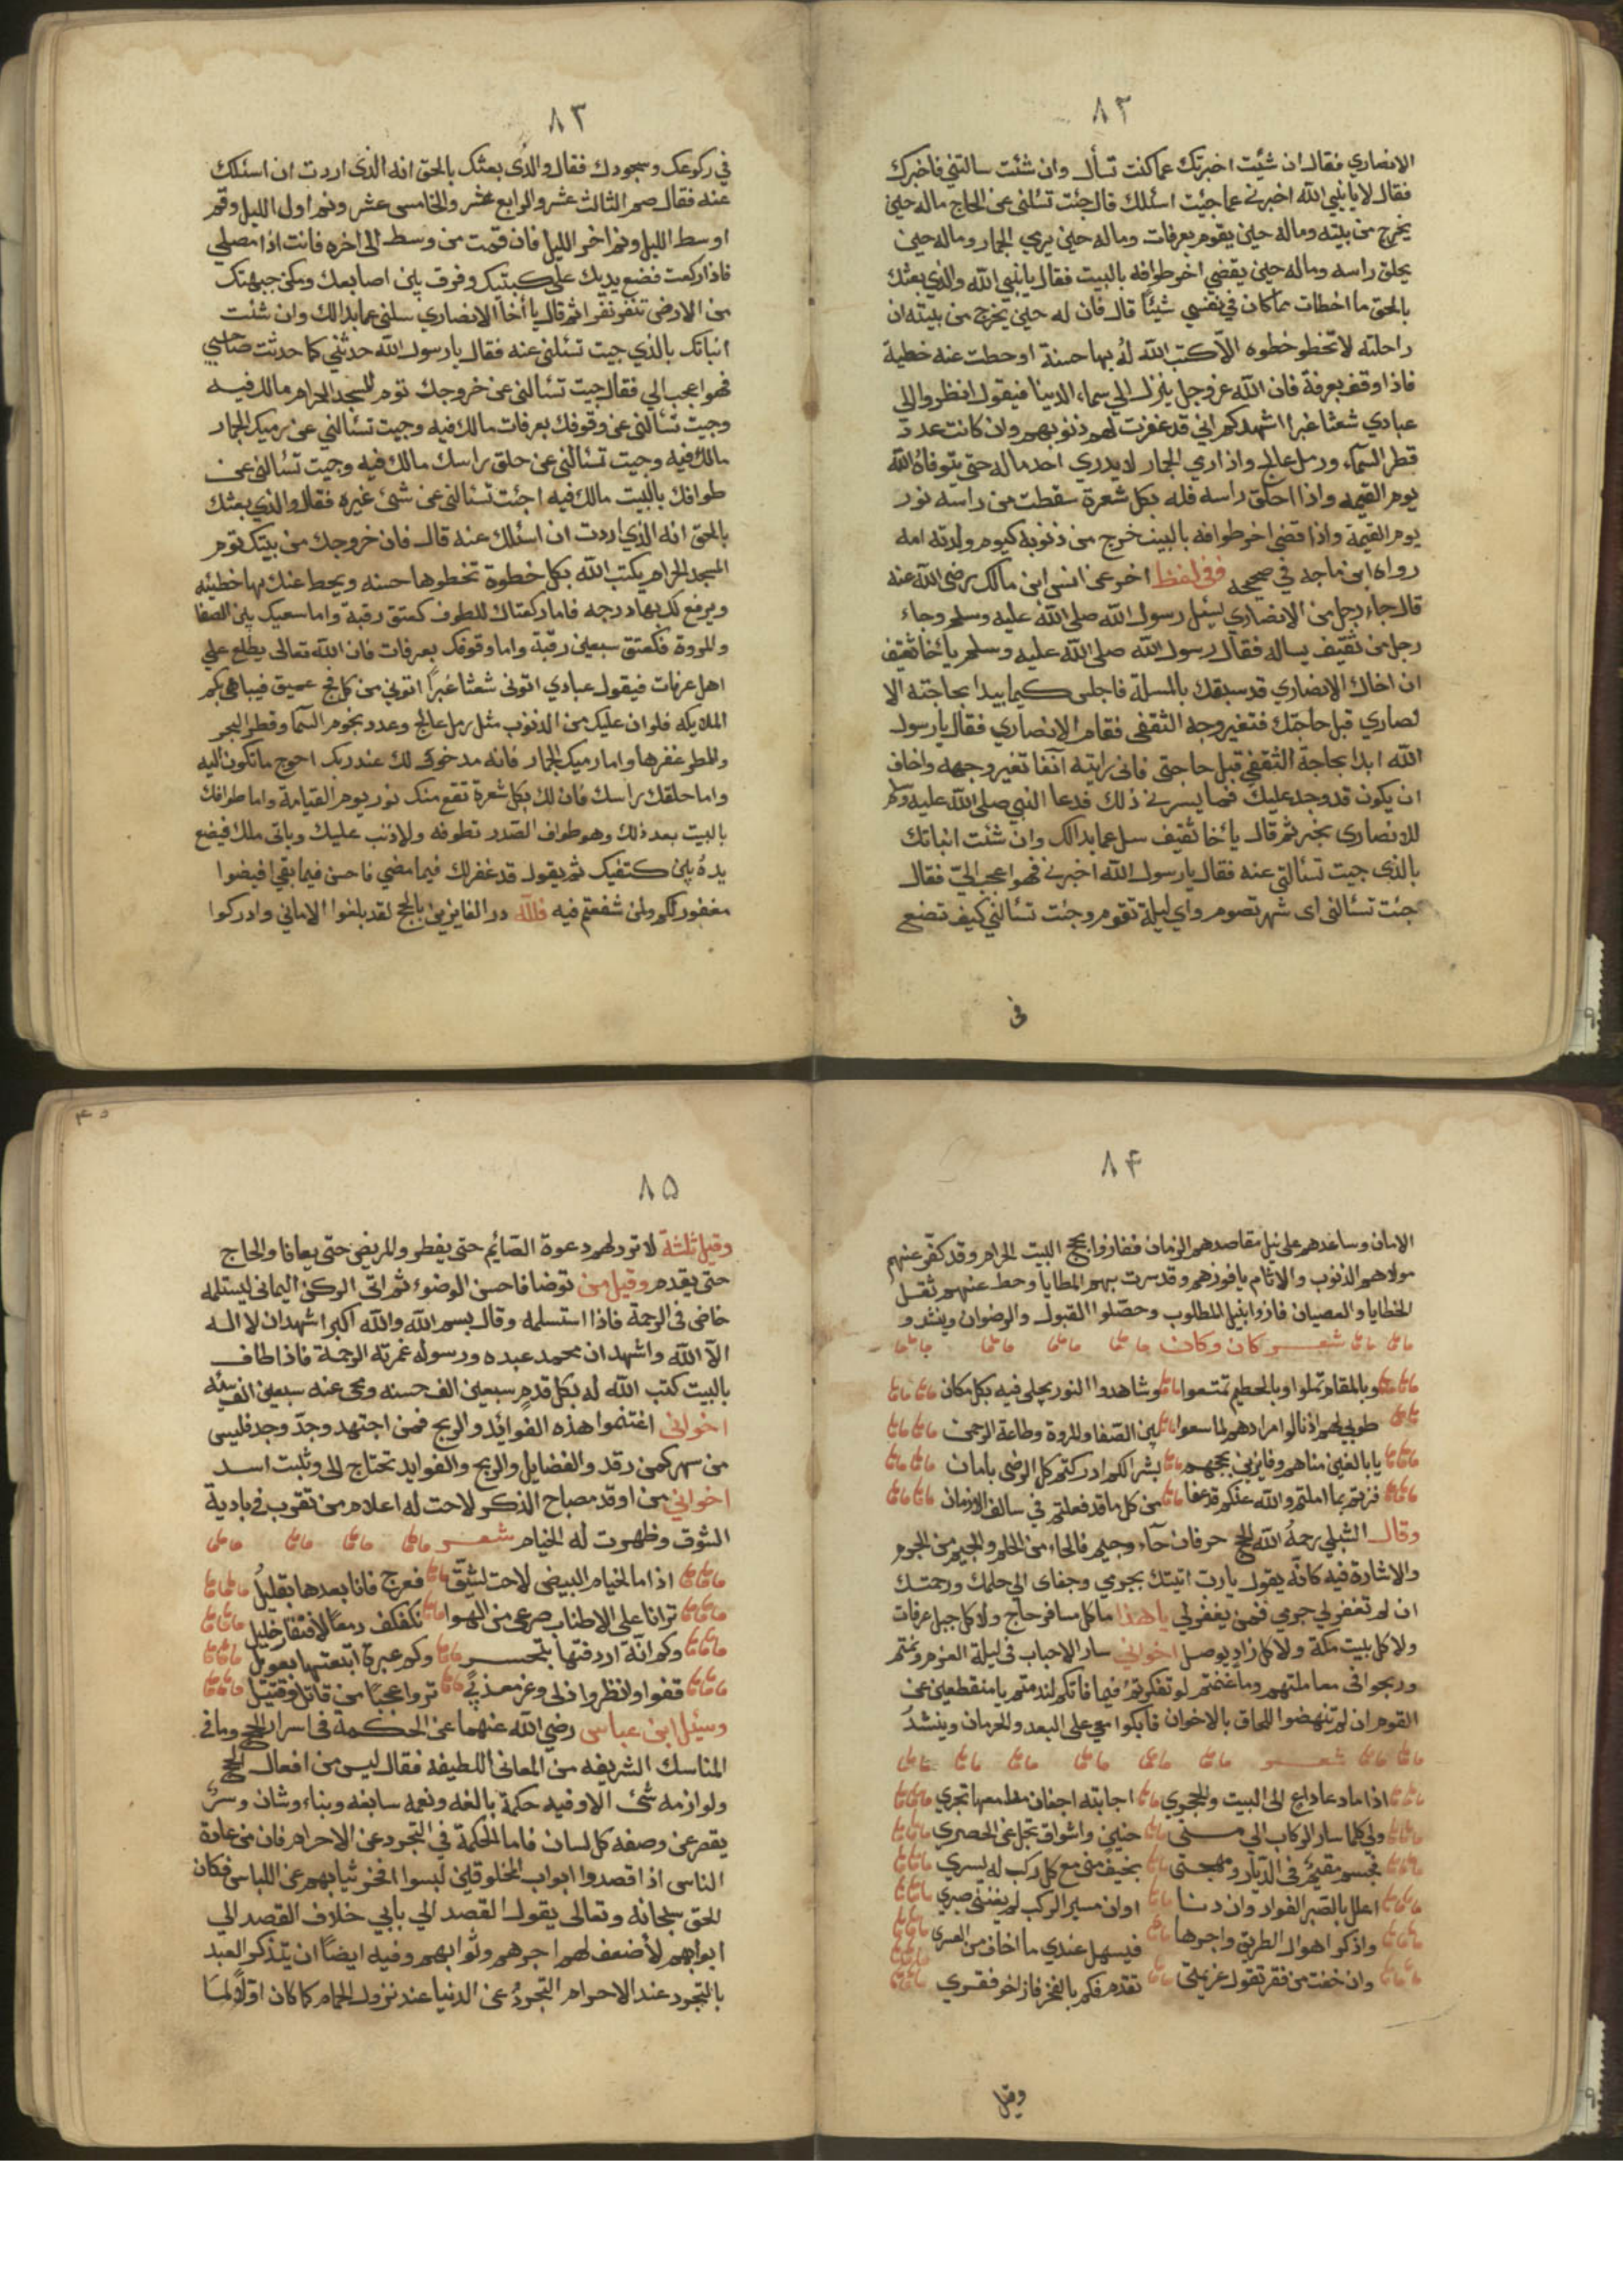 ٨٢
الانصاري فقال ان شئت اخبرتك عما كنت تسأل وان شئت سالتني فأخبرك
فقال لا يا نبي الله اخبرني عما جئت اسئلك قال جئت تسئلني عن الحاج ماله حين
يخرج من بيته وماله حين يقوم بعرفات وماله حين يرمي الجمار وماله حين
يحلق راسه وماله حين يقضي اخر طوافه بالبيت فقال يا نبي الله والذي بعثك
بالحق ما اخطات مما كان في نفسي شيئا قال فان له حين يخرج من بيته ان
راحلته لا تخطو خطوه الا كتب الله له بها حسنة او حطت عنه خطية
فاذا وقف بعرفة فان الله عز وجل ينزل الي سماء الدينا فيقول انظروا الى
عبادي شعثا غبرا اشهدكم اني قد غفرت لهم ذنوبهم وان كانت عدد
قطر السماء ورمل عالج واذا رمي الجمار لا يدري احد ماله حتى يتوفاه الله
يوم القيمه واذا احلق راسه فله بكل شعرة سقطت من راسه نور
يوم القيمة واذا قضى اخر طوافه بالبيت خرج من ذنوبه كيوم ولدته امه
رواه ابن ماجه في صحيحه وفي لفظ اخر عن انس ابن مالك رضي الله عنه
قال جاء رجل من الانصاري يسئل رسول الله صلى الله عليه وسلم وجاء
رجل من ثقيف يساله فقال رسول الله صلى الله عليه وسلم يا أخا ثقيف
ان اخاك الانصاري قد سبقك بالمسلة فاجلس كيما يبدا بحاجته الا
نصاري قبل حاجتك فتغير وجه الثقفي فقام الانصاري فقال يا رسول
الله ابدا بحاجة الثقفي قبل حاجتى فاني رايته آنفا تغير وجهه واخاف
ان يكون قد وجد عليك فما يسرني ذلك فدعا النبي صلى الله عليه وسلم
للانصارى بخير ثم قال يا أخا ثقيف سل عما بدالك وان شئت انباتك
بالذي جيت تسئالني عنه فقال يا رسول الله اخبرني فهو اعجب اليّ فقال
جئت تسئالني اى شهر تصوم واي ليلة تقوم وجئت تسئالني كيف تضع
في
٨٣
في ركوعك وسجودك فقال والذي بعثك بالحق انه الذي اردت ان اسئلك
عنه فقال صم الثالث عشر والرابع عشر والخامس عشر ونم اول الليل وقم
اوسط الليل ونم اخر الليل فان قمت من وسط الى اخره فانت اذا مصلي
فاذا ركعت فضع يديك على ركبتيك وفرق بين اصابعك ومكن جبهتك
من الارض تنقر نقرا ثم قال يا أخا الانصاري سلني عما بدالك وان شئت
انباتك بالذي جيت تسئلني عنه فقال يا رسول الله حدثني كما حدثت صاحبي
فهو اعجب الي فقال جيت تسئالني عن خروجك تؤم المسجد الحرام مالك فيه
وجيت تسئالني عن وقوفك بعرفات مالك فيه وجيت تسئالني عن رميك الجمار
مالك فيه وجيت تسئالني عن حلق راسك مالك فيه وجيت تسئالني عن
طوافك بالبيت مالك فيه اجئت تسئالني عن شئ غيره فقال والذي بعثك
بالحق انه الذي اردت ان اسئلك عنه قال فان خروجك من بيتك تؤم
المسجد الحرام يكتب الله بكل خطوة تخطوها حسنه ويحط عنك بها خطيئه
ويرفع لك بها درجه فاما ركعتاك للطوف كعتق رقبة واما سعيك بين الصفا
والمروة فكعتق سبعين رقبة واما وقوفك بعرفات فان الله تعالى يطلع على
اهل عرفات فيقول عبادي اتوني شعثا غبراً اتوني من كل فج عميق فيباهي بكم
الملايكه فلو ان عليك من الذنوب مثل رمل عالج وعدد نجوم السما وقطر البحر
والمطر غفرها واما رميك الجمار فانه مدخور لك عند ربك احوج ما تكون اليه
واما حلقك راسك فان لك بكل شعرة تقع منك نور يوم القيامة واما طوافك
بالبيت بعد ذلك وهو طواف الصدر تطوفه ولا ذنب عليك وياتى ملك فيضع
يده بين كتفيك ثم يقول قد غفر لك فيما مضي فاحسن فيما بقي افيضوا
مغفور لكم ولمن شفعتم فيه فلله در الفايزين بالحج لقد بلغوا الاماني وادركوا
٨٤
الامان وساعدهم على نيل مقاصدهم الزمان ففازوا بحج البيت الحرام وقد كفر عنهم
مولاهم الذنوب والاثام يا فوزهم وقد سرت بهم المطايا وحط عنهم ثقل
الخطايا والعصيان فازوا بنيل المطلوب وحصلوا القبول والرضوان وينشد و
شعر كان وكان
وبالمقام تملوا وبالحطيم تمتعوا وشاهدوا النور يجلى فيه بكل مكان
طوبي لهم اذ نالوا مرادهم لما سعوا بين الصفا والمروة وطاعة الرحمن
يا بالغين مناهم وفايزين بحجهم بشراكم ادركتم كل الرضى بامان
فزتم بما املتم والله عنكم قد عفا من كل ما قد فعلتم في سالف الازمان
وقال الشبلي رحمه الله الحج حرفان حآء وجيم فالحاء من الحلم والجيم من الجرم
والاشارة فيه كانه يقول يا رب اتيتك بجرمي وجفاى الي حلمك ورحمتك
ان لم تغفر لي جرمي فمن يغفر لي يا هذا ما كل مسافر حاج ولا كل جبل عرفات
ولا كل بيت مكة ولا كل زاد يوصل اخواني سار الاحباب في ليلة العزم ونمتم
وربحوا في معاملتهم وما غنمتم لو تفكرتم فيما فاتكم لندمتم يا منقطعين عن
القوم ان لم تنهضوا اللحاق بالاخوان فابكوا معي على البعد والحرمان وينشدُ
شعر
اذا ما دعا داع الى البيت والحجري اجابته اجفان مدامعها تجري
ولي كلما سار الركاب الي منى حنين واشواق تجل عن الحصري
فجسم مقيم في الديار ومهجتى بخيف منى مع كل ركب له يسري
اعلل بالصبر الفواد وان دنا اوان مسير الركب لم يغنني صبري
واذكر اهوال الطريق واجرها فيسهل عندي ما اخاف من العسرى
وان خفت من فقر تقول عزيمتى تقدم فكم بالفخر فاز اخو فقري
وقيل
٨٥
وقيل ثلثة لا ترد لهم دعوة الصائيم حتى يفطر والمريض حتى يعافا والحاج
حتى يقدم وقيل من توضا فاحسن الوضوء ثم اتى الركن اليماني ليستلمه
خاض في الرحمة فاذا استسلمه وقال بسم الله والله اكبر اشهد ان لا اله
الا الله واشهد ان محمد عبده ورسوله غمرته الرحمة فاذا طاف
بالبيت كتب الله له بكل قدم سبعين الف حسنه ومحى عنه سبعين الف سئيه
اخواني اغتنموا هذه الفوائد والربح فمن اجتهد وجدّ وجد فليس
من سهر كمن رقد والفضايل والربح والفوايد تحتاج الى وثبت اسد
اخواني من اوقد مصباح الذكر لاحت له اعلام من تقرب في بادية
الشوق وظهرت له الخيام شعر
اذا ما الخيام البيض لاحت لشيق فعرج فانا بعدها بقليل
ترانا على الاطناب صرعى من الهوا نكفكف دمعا لافتقار خليل
وكم انّة اردفتها بتحسر وكم عبرة ابتعتها بعويل
قفوا وانظروا ذلى وعز معذبي تروا عجبا من قاتل وقتيل
وسئيل ابن عباس رضي الله عنهما عن الحكمه في اسرار الحج وما في
المناسك الشريفه من المعاني اللطيفه فقال ليس من افعال الحج
ولوازمه شئ الا وفيه حكمة بالغه ونعمه سابغه وبناء وشان وسر
يقصر عن وصفه كل لسان فاما الحكمة في التجرد عن الاحرام فان من عادة
الناس اذا قصدوا ابواب المخلوقين لبسوا افخر ثيابهم عن اللباس فكان
الحق سبحانه وتعالى يقول القصد الي بابي خلاف القصد الي
ابوابهم لأضعف لهم اجرهم وثوابهم وفيه ايضاً ان يتذكر العبد
بالتجرد عند الاحرام التجردُ عن الدنيا عند نزول الحمام كما كان اولاً لما